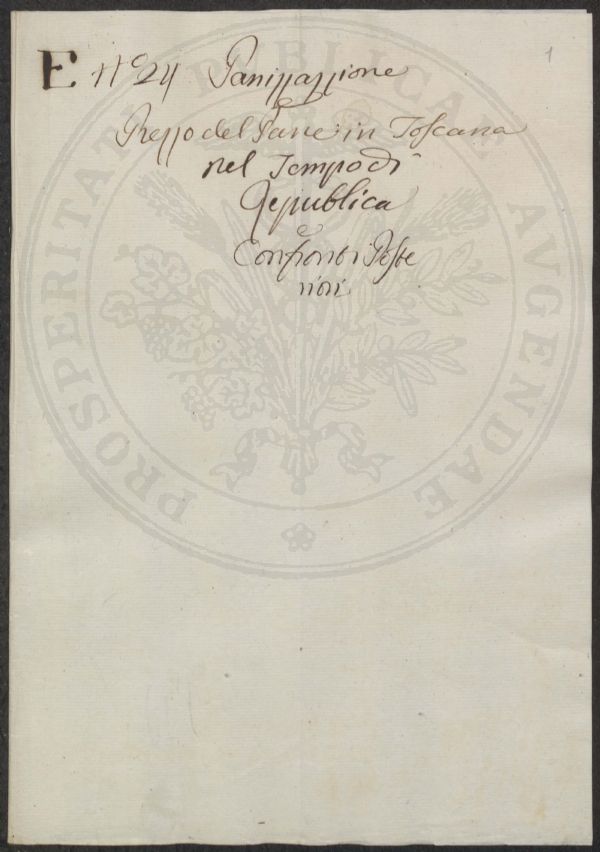 E n° 24 Panizzazione
1
e
Prezzo del Pane in Toscana
nel Tempo di
Republica
e
Confronti Poste
riori
PROSPERITATI PUBLICAE AVGENDAE